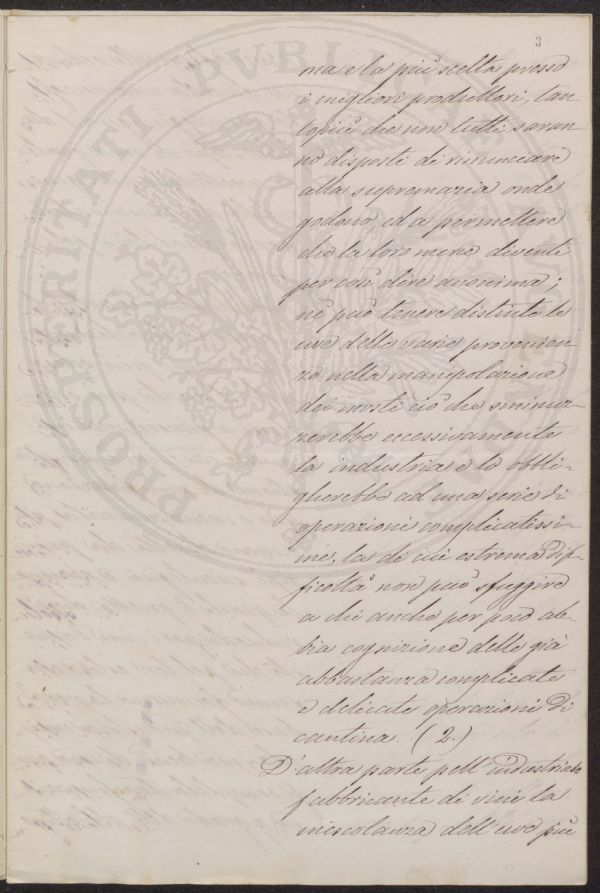 3
ma e la più scelta presso
i migliori produttori, tan-
topiù che non tutti saran-
no disposti di rinunciare
alla supremazia onde
godono, ed a permettere
che la loro merce diventi
per così dire anonima;
nè può tenere distinte le
uve delle varie provenien-
ze nella manipolazione
dei mosti ciò che sminuz-
zerebbe eccessivamente
la industria e la obbli-
gherebbe ad una serie di
operazioni complicatissi-
me, la di cui estrema dif-
ficoltà non può sfuggire
a chi anche per poco ab-
bia cognizione delle già
abbastanza complicate
e delicate operazioni di
cantina. (2.)
D'altra parte pell'industriale
fabbricante di vini la
mescolanza dell'uve più
PROSPERITATI PVBLICAE